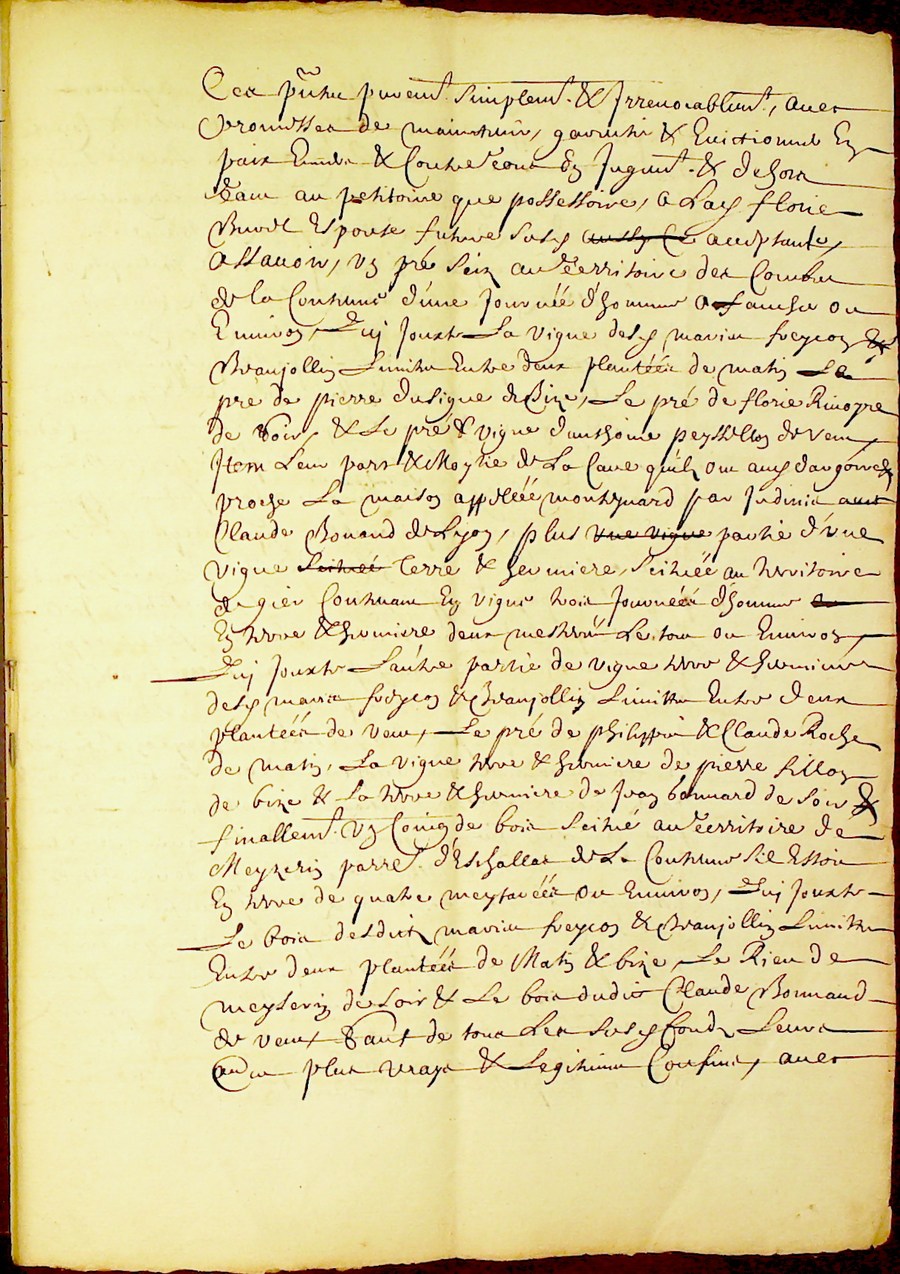 Ces pñtes purem.t simplem.t & Irreuocablem.t, auec
Promesses de maintenir, garentir & Euictionner En
paix Enuers & Contre tous En Jugem.t & dehors
tant au petitoire que possessoire, a Lad florie
Espouse future susd acceptante,
Assauoir, Vn pré Scis au territoire des Combes
de la Contenue d'une Journéé d'homme a faucher ou
Enuiron, Qui Jouxte La vigne desd mariés freycon &
Beaujollin Limitte Entre deux plantéés de matin Le
pré de pierre de Bize, Le pré de florie
de Soir, & Le pré & vigne d'anthoine peyssellon de vent,
Item Leur part & Moytie de La Caue quils ont aud
proche La maison appelléé montegnard par Indiuis
Claude Bonard de Lyon, plus vne vigne partie d'vne
vigne Scituéé terre & herniere, Scituéé au territoire
de gier Contenant En vigne trois Journéés d'homme
En terre & herniere deux Le tout ou Enuiron,
Qui Jouxte L'autre partie de vigne terre & herniere
desd mariés freycon & Beaujollin Limitte Entre deux
plantéés de vent, Le pré de philippe & Claude Roche
de matin, La vigne terre & herniere de pierre Sillon
de bize & La terre & herniere de Jean bonnard de Soir &
finallem.t Vn Coing de bois Scitué au territoire de
Meyzerin parre. d'Eschallas de La Contenue Sil Estoit
En terre de quatre ou Enuiron, Qui Jouxte
Le bois desdits mariés freycon & Beaujollin Limitte
Entre deux plantéés de Matin & bize, Le Rieu de
meyserin de Soir & Le bois dudit Claude Bonnard
de vent Sauf de tous Les susd fonds Leurs
autres plus vrays & Legitimes Confins, auec